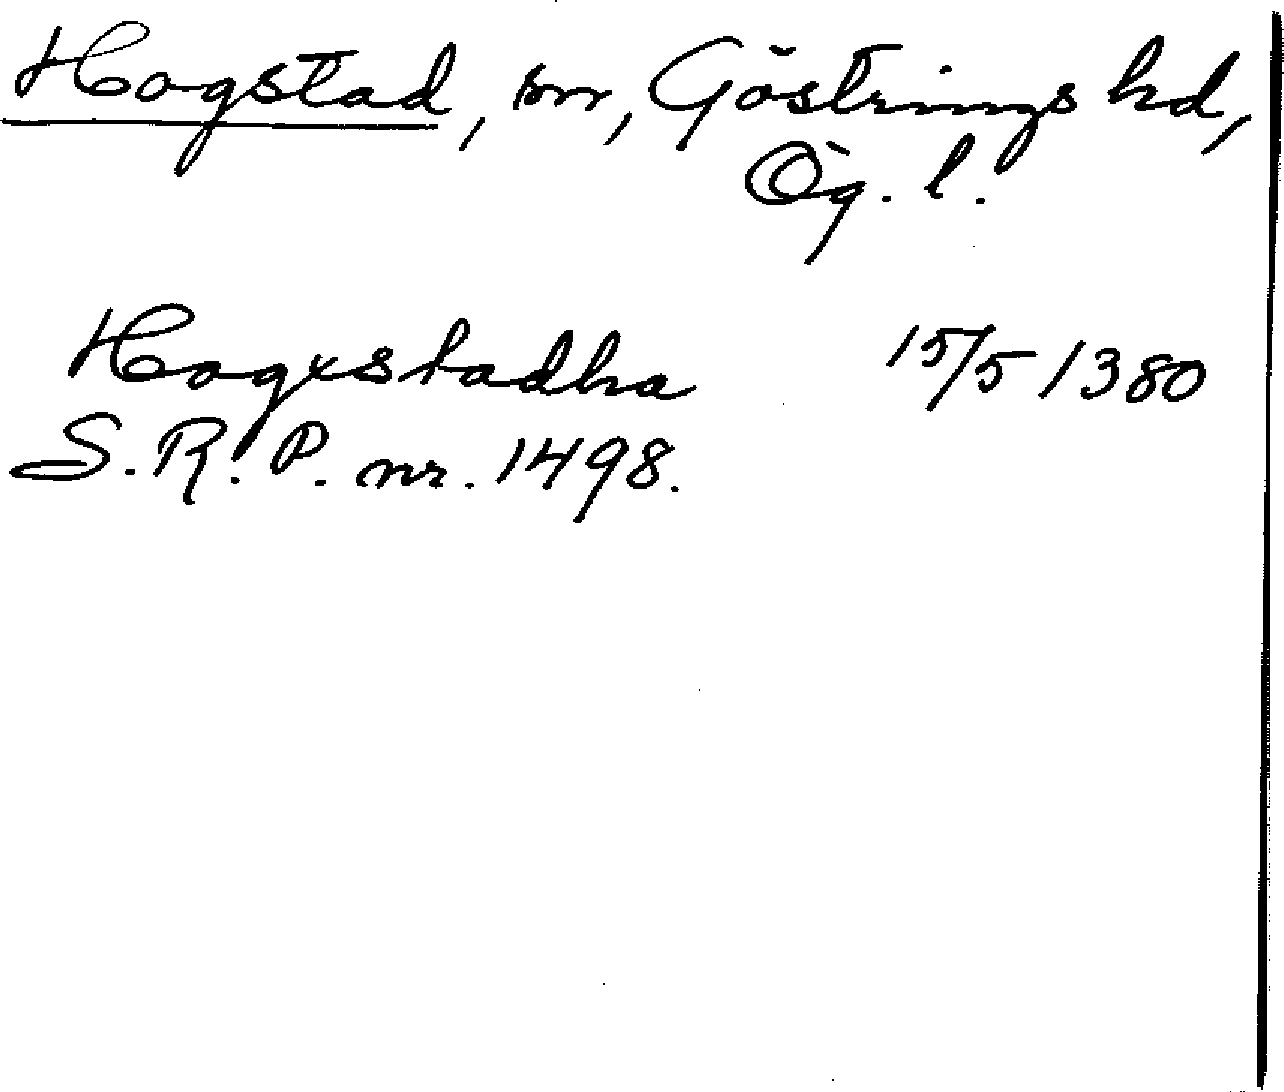 Hogstad, sn, Göstrings hd,
Ög. l.
Hogxstadha 15/5 1380
S. R. P. nr. 1498.